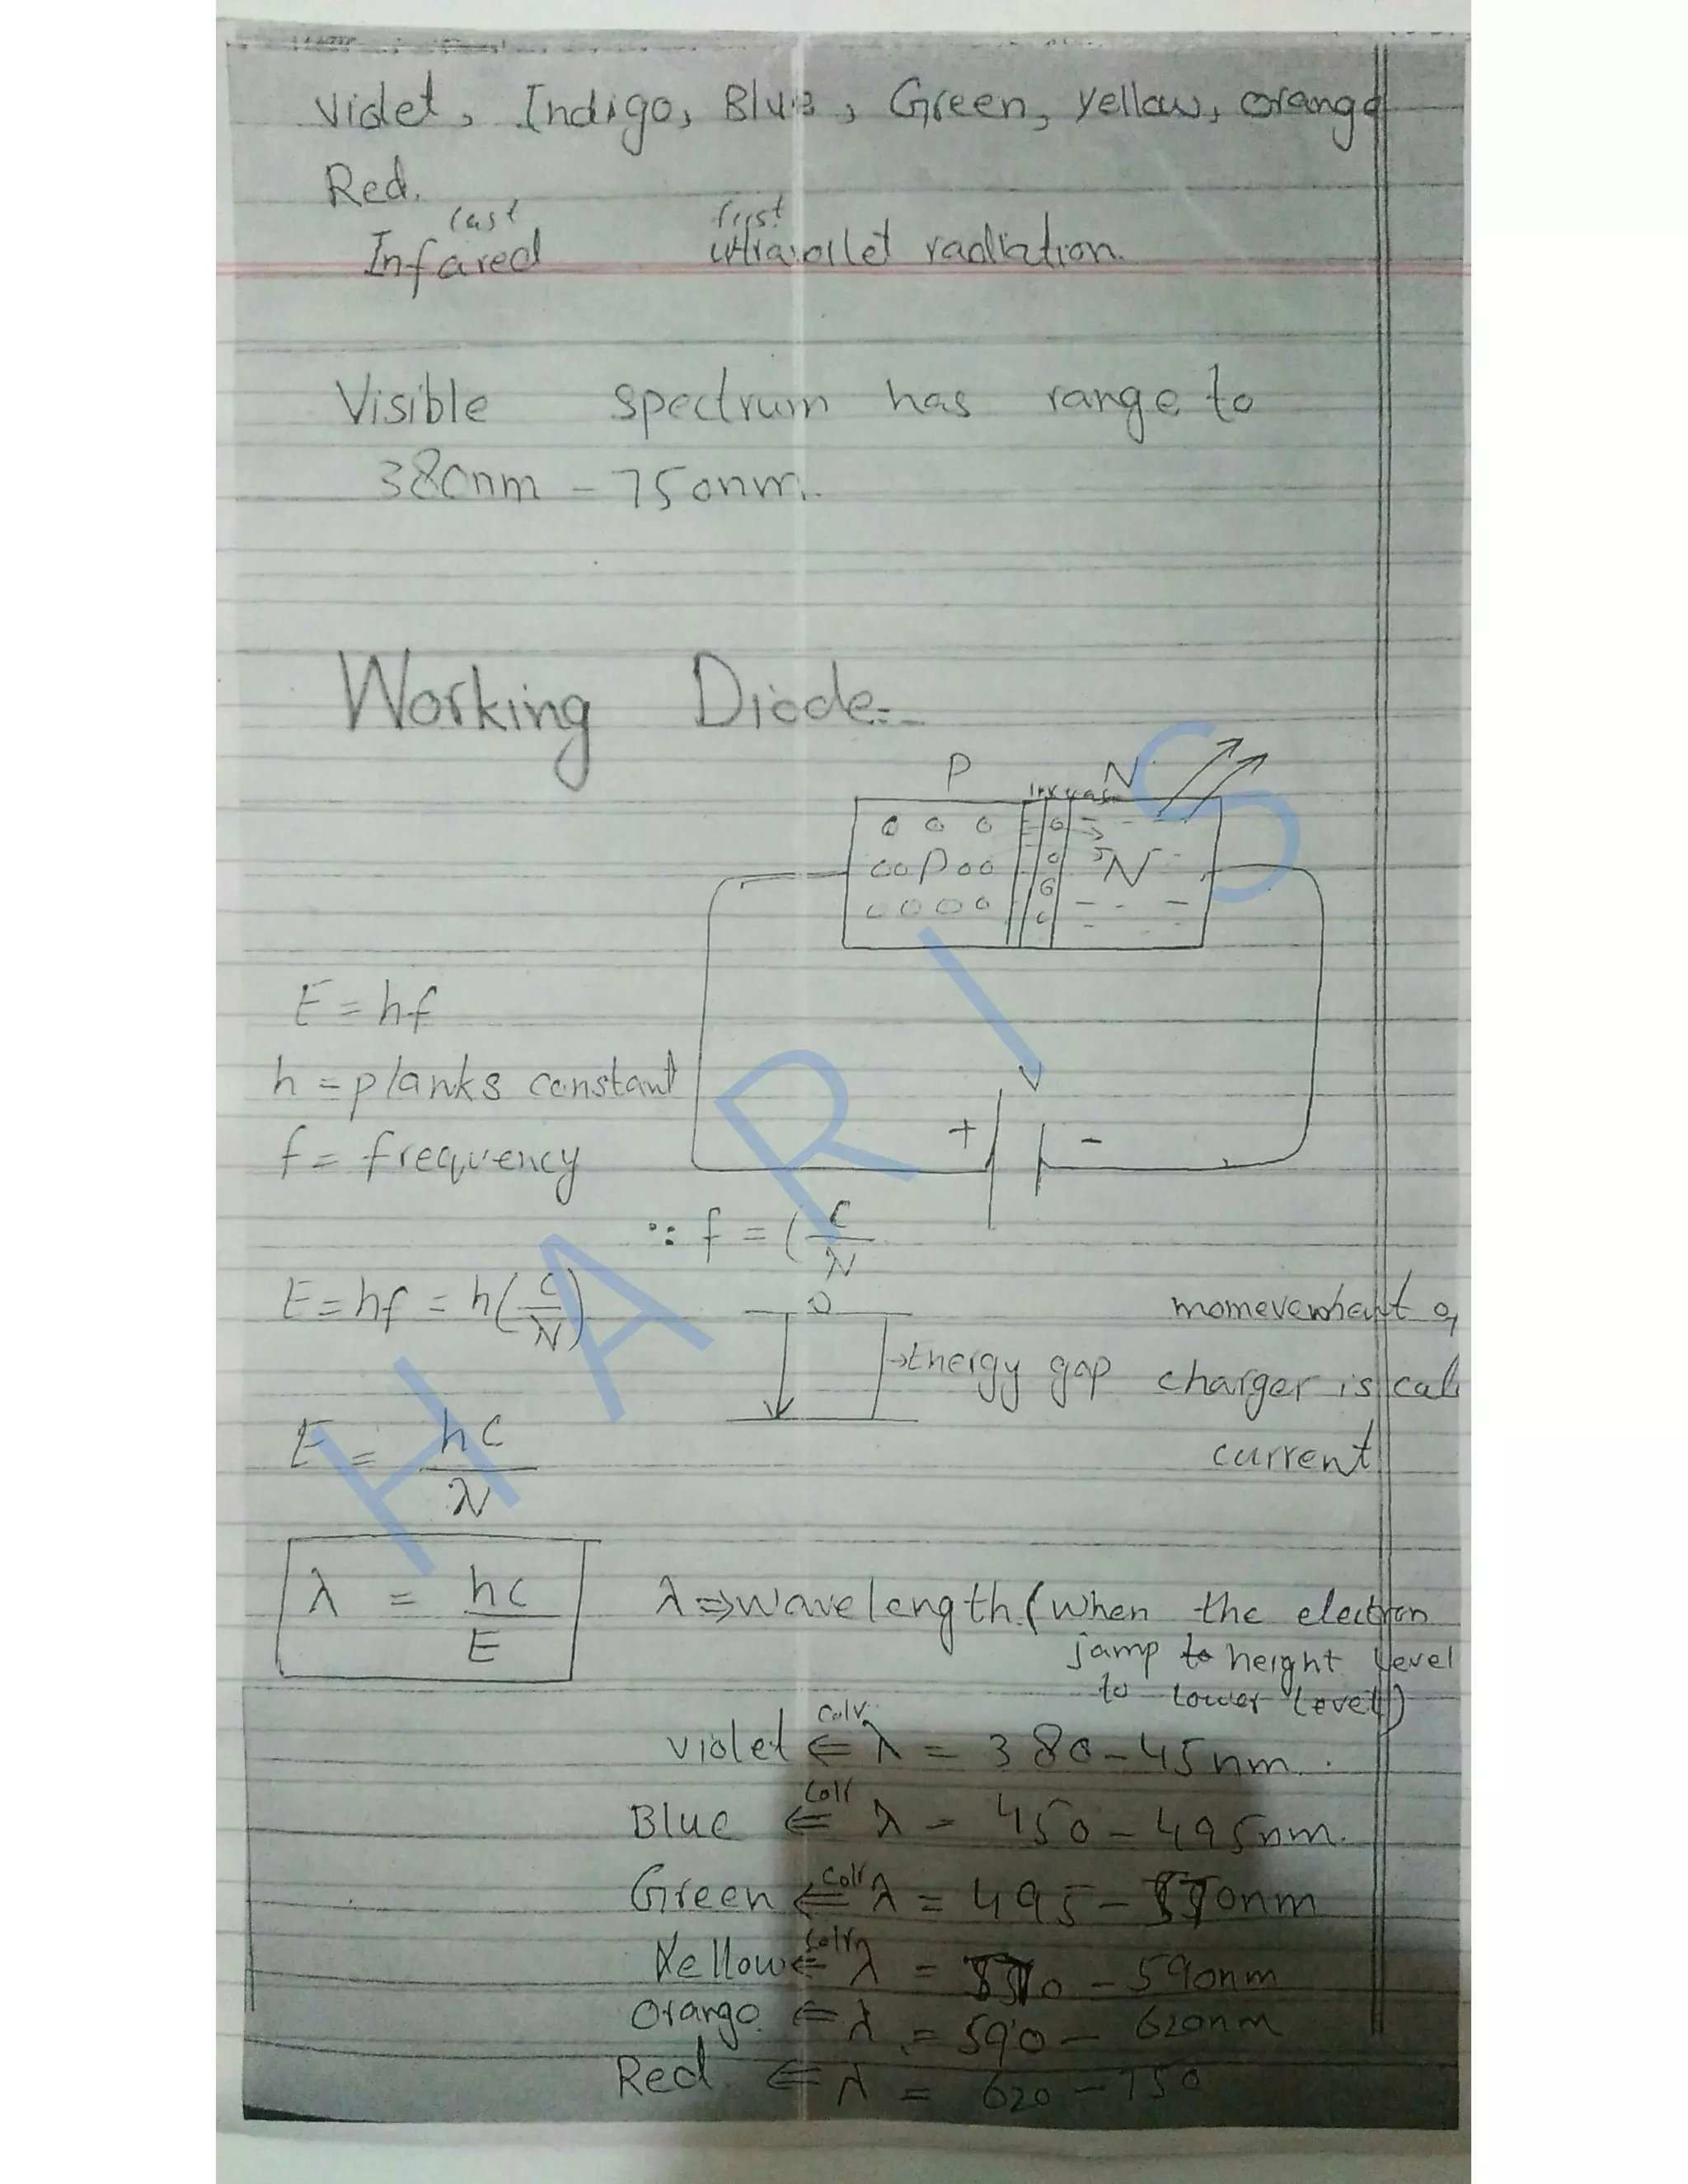 Violet, Indigo, Blue, Green, yellow, orange
Red.
last first
Infared ultraviolet radiation.
Visible spectrum has range to
380nm - 750nm.
Working Diode:-
P N
P N
E = hf
h = planks constant
f = frequency
V
+ -
∵ f = (c/λ
E = hf = h(c/λ)
→Energy gap
momevement o
charger is cal
current
E = hc/λ
λ = hc/E
λ ⇒ wavelength. (when the electron
jamp to height level
to lower level)
violet ⇐ λ = 380 - 45nm.
Blue ⇐ λ = 450 - 495nm.
Green ⇐ λ = 495 - 570nm
Yellow ⇐ λ = 570 - 590nm
Orange ⇐ λ = 590 - 620nm
Red. ⇐ λ = 620 - 750
HARIS